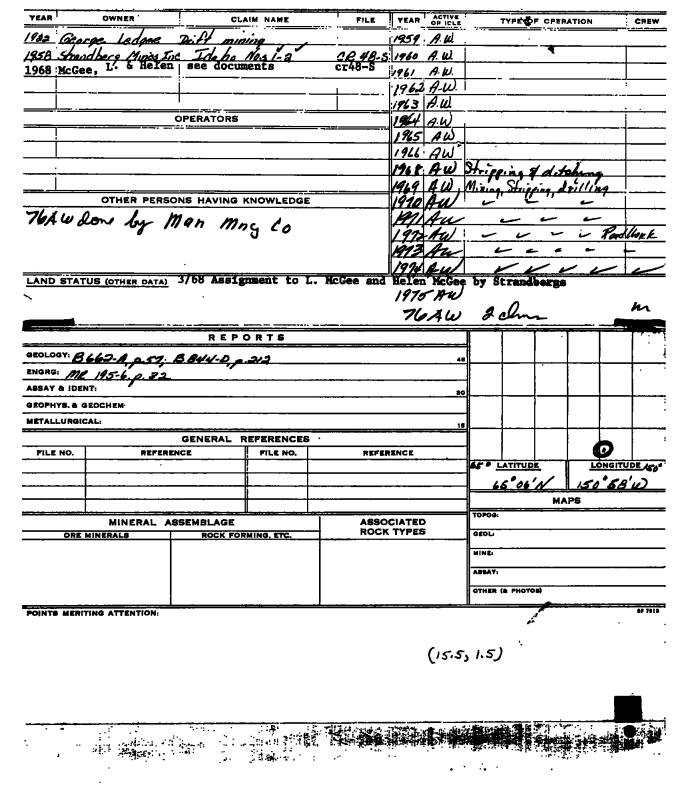 YEAR OWNER CLAIM NAME FILE YEAR ACTIVE OR IDLE TYPE OF OPERATION CREW
1932 George Ledger Drift mining 1959 A.W.
1958 Strandberg Mines Inc Idaho Nos 1-2 CR 48-S 1960 A.W.
1968 McGee, L. & Helen see documents cr48-S 1961 A.W.
1962 A.W.
1963 A.W.
OPERATORS 1964 A.W
1965 AW
1966 AW
1968 AW Stripping & ditching
1969 AW Mining, Stripping, drilling
OTHER PERSONS HAVING KNOWLEDGE 1970 AW ✓ ✓ ✓
76AW done by Man Mng Co 1971 AW ✓ ✓ ✓ ✓
1972 AW ✓ ✓ ✓ ✓
1973 AW ✓ ✓ ✓ ✓ ✓
1974 AW ✓ ✓ ✓ ✓ ✓ ✓
LAND STATUS (OTHER DATA) 3/68 Assignment to L. McGee and Helen McGee by Strandbergs
1975 AW
76 AW 2 clms m
REPORTS
GEOLOGY: B662-A, p.57; B844-D, p.212 45
ENGRG: MR 195-6, p. 32
ASSAY & IDENT: 30
GEOPHYS. & GEOCHEM:
METALLURGICAL: 15
GENERAL REFERENCES
FILE NO. REFERENCE FILE NO. REFERENCE
65° LATITUDE LONGITUDE 150°
65°06'N 150°58'W
MAPS
MINERAL ASSEMBLAGE ASSOCIATED ROCK TYPES TOPOG:
ORE MINERALS ROCK FORMING, ETC. GEOL:
MINE:
ASSAY:
OTHER (& PHOTOS)
POINTS MERITING ATTENTION:
(15.5, 1.5)